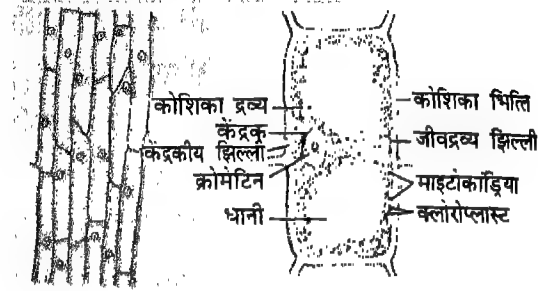 कोशिका द्रव्य
केंद्रक
केंद्रकीय झिल्ली
क्रोमेटिन
धानी
कोशिका भित्ति
जीवद्रव्य झिल्ली
माइटोकॉंड्रिया
क्लोरोप्लास्ट